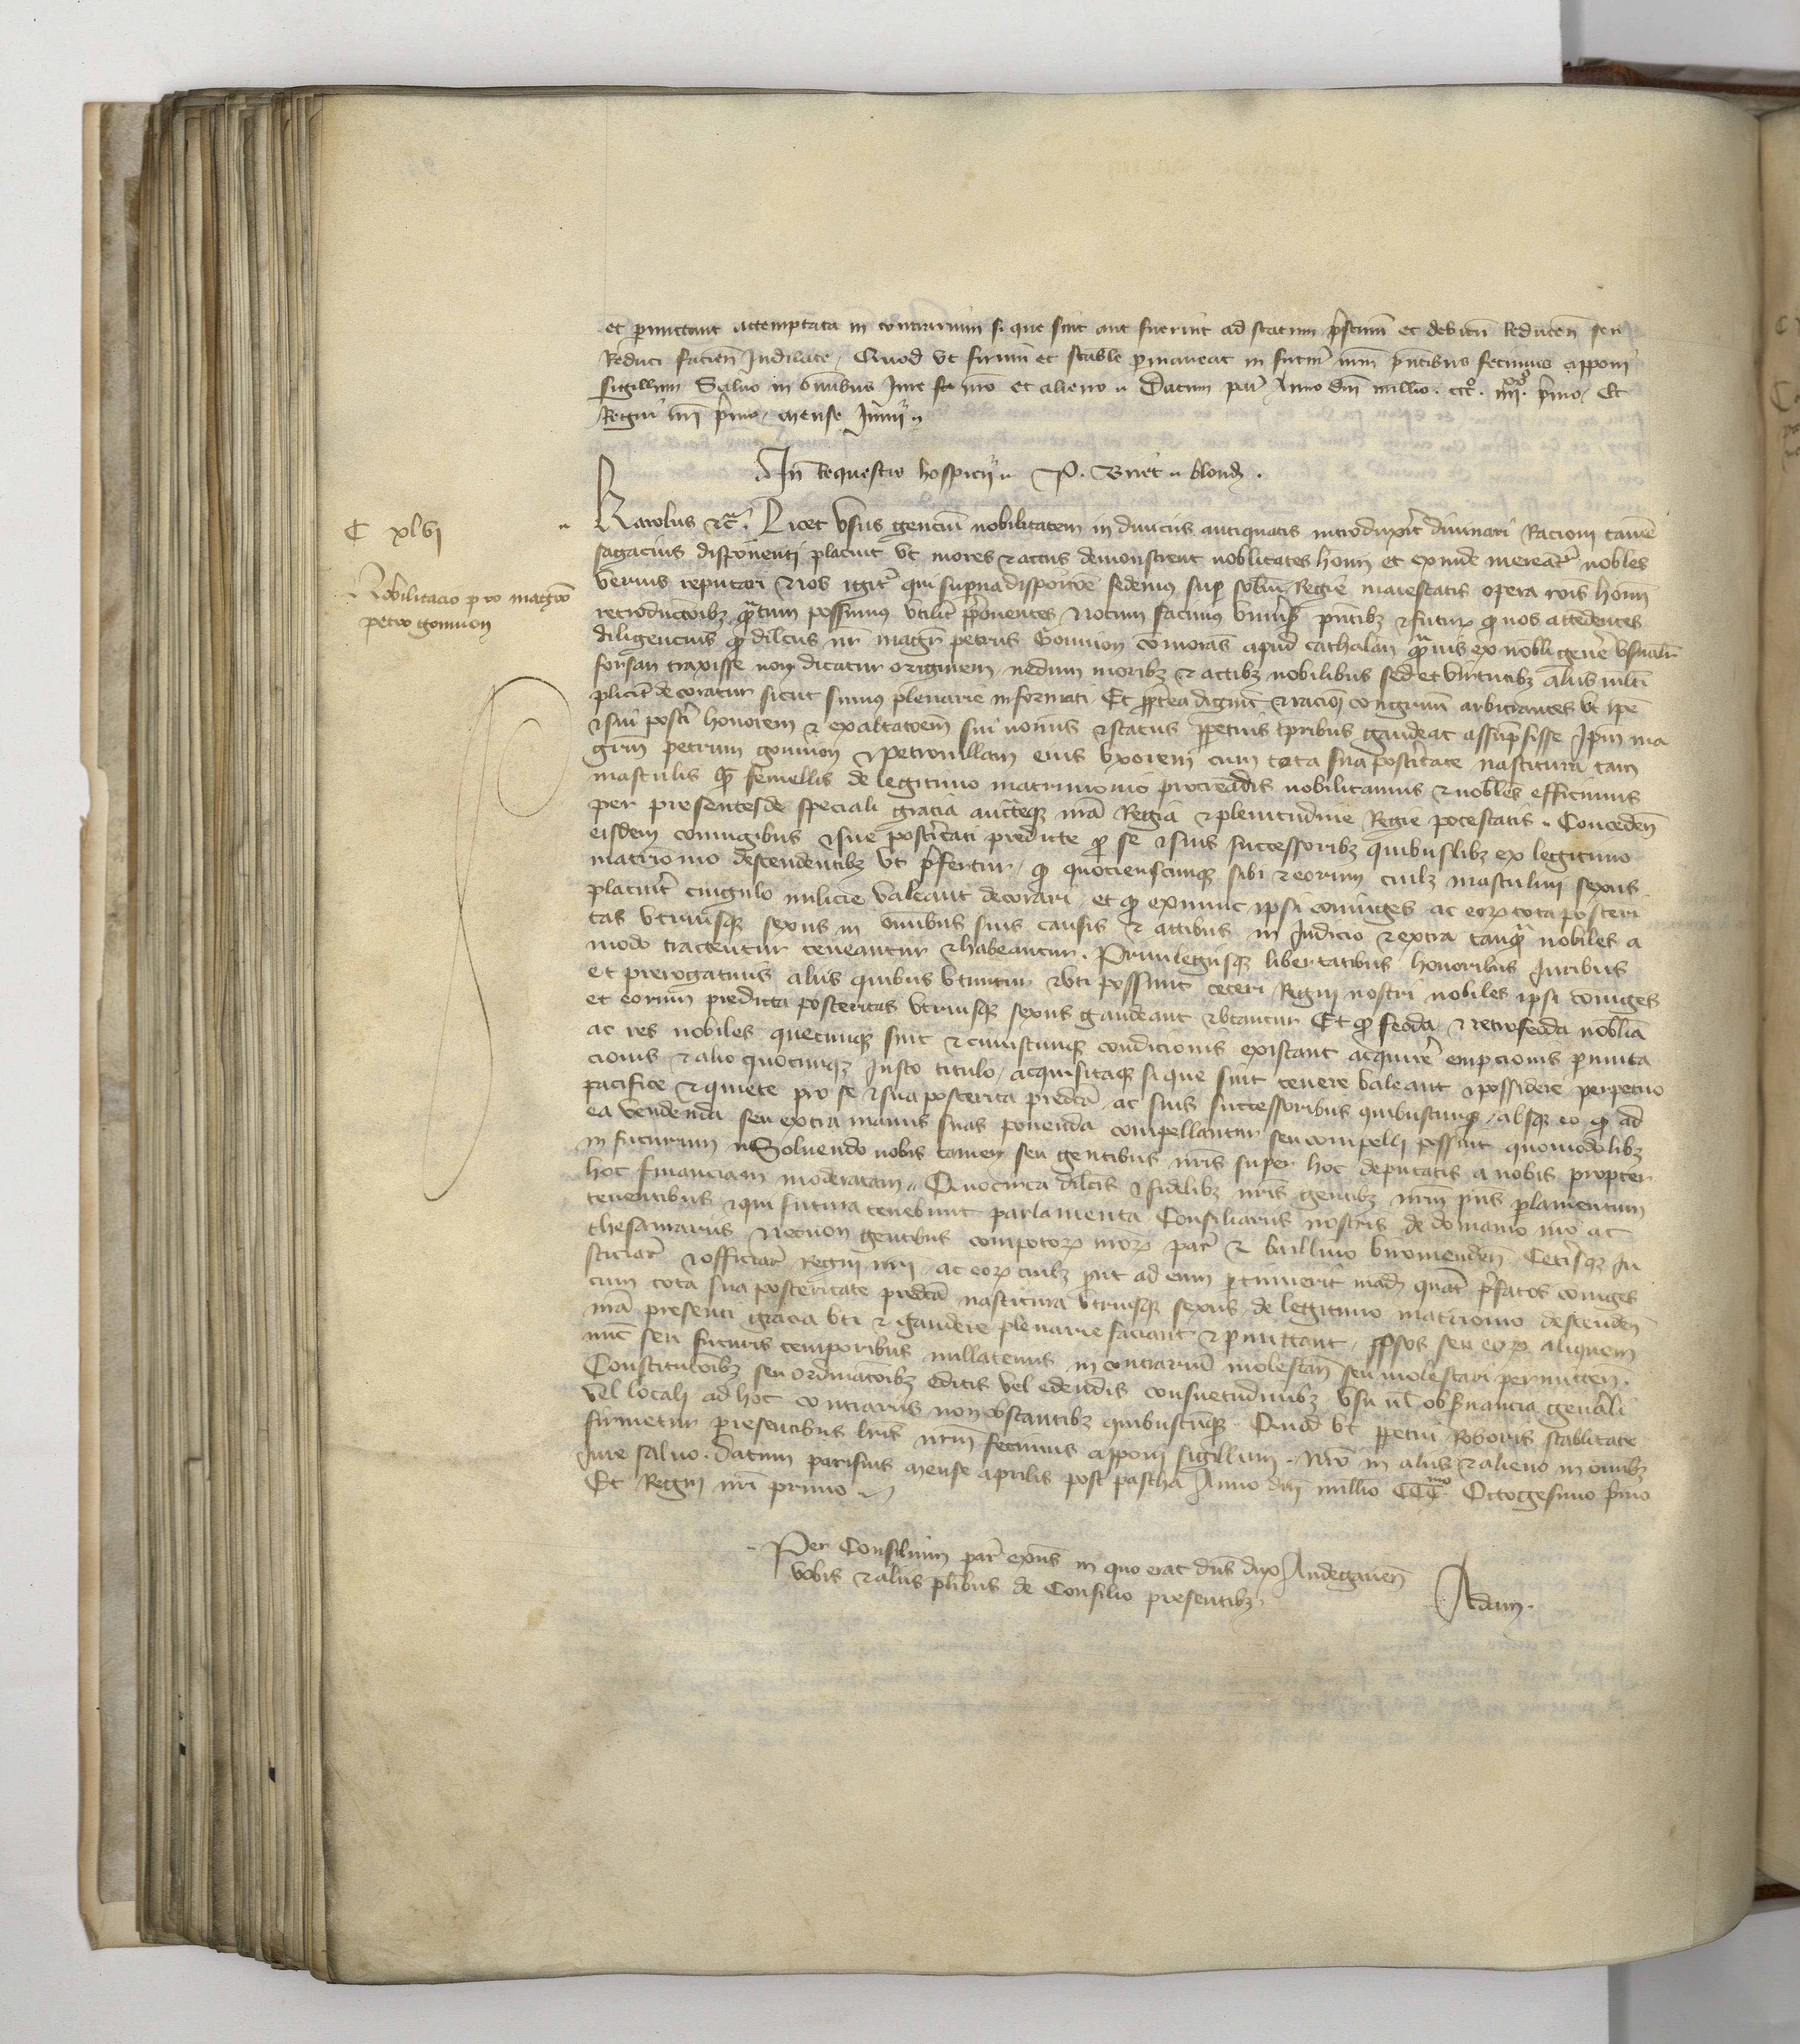 et permittant attemptata in contrarium si que sint aut fuerint ad statum pristinum et debitum Reducendo seu
Reduci faciendo Indilate, Quod ut firmum et stabile permaneat in futurum nostrum presentibus fecimus apponi
sigillum Salvo in omnibus Jure nostro et alieno Datum par Anno dni millio. ccco. iiiixx. primo, Et
Regni nri primo, mense Junii
In requestis hospicii P. Briet blond.
C xlvi
Karolus etc. Licet usus gencium nobilitatem in divitiis antiquatis introduxerit divinari Racioni tamen
sagacius disponenti placuit ut mores et actus demonstrent nobilitates hominum et exinde mereantur nobiles
Nobilitacio pro magistro
petro gomion
verius reputari Nos igitur qui superna disposicione sedemus super solium Regie maiestatis opera hominum
retroductoribus quantum possumus utiliter proponentes Notum facimus universis presentibus et futuris quod nos attendentes
diligencius quod dilectus nr magister petrus Gomion commorans apud cathalan quamvis ex nobili genere usualiter
forsan traxisse non dicatur originem, nedum moribus et actibus nobilibus sed et virtutibus aliis multi
pliciter decoratur sicut sumus plenarie informati Et propterea dignum et racioni congruum arbitrantes ut ipse
et sui posteri honorem et exaltacionem sui nominis et status perpetuis temporibus gaudeat assumpsisse Ipsum ma
gistrum petrum gomion et petronillam eius uxorem cum tota sua posteritate nascitura tam
masculis quam femellis de legitimo matrimonio procreandis nobilitamus et nobiles efficimus
per presentes de speciali gracia auctoritateque nra Regia et plenitudine Regie potestatis. Concedentes
eisdem coniugibus et sue posteritati predicte pro se et suis successoribus quibuslibet ex legitimo
matrimonio descendentibus ut prefertur, quod quocienscunque sibi et eorum cuilibet masculini sexus
placuerit cingulo milicie valeant decorari, et quod exnunc ipsi coniuges ac eorum tota posteri
tas utriusque sexus in omnibus suis causis et actibus in Judicio et extra tanquam nobiles a
modo tractentur teneantur et habeantur. Privilegiisque libertatibus honoribus Juribus
et prerogativis aliis quibus utuntur et uti possunt ceteri Regni nostri nobiles ipsi coniuges
et eorum predicta posteritas utriusque sexus gaudeant et utantur Et quod feoda et retrofeoda nobilia
ac res nobiles quecunque sint et cuiuscunque condicionis existant acquirere empcionis permuta
cionis et alio quocunque Justo titulo, acquisitaque si que sint tenere valeant et possidere perpetuo
pacifice et quiete pro se et sua posterita predicta ac suis successoribus quibuscunque, absque eo quod ad
ea vendenda seu extra manus suas ponenda compellantur seu compelli possint quomodolibet
in futurum Solvendo nobis tamen seu gentibus nris super hoc deputatis a nobis propter
hoc financiam moderatam. Quocirca dilectis et fidelibus nris gentibus nrum presens parlamentum
tenentibus et qui futura tenebunt parlamenta Consiliariis nostris de domanio nro ac
thesaurariis Necnon gentibus compotorum nrorum par et baillivo viromandensi Ceterisque Ju
sticiariis et officiariis Regni nri, ac eorum cuilibet prout ad eum pertinuerit mandantes quatinus prefatos coniuges
cum tota sua posteritate predicta nascitura utriusque sexus de legitimo matrimonio descendente
nra presenti gracia uti et gaudere plenarie faciant et permittant, Ipsos seu eorum aliquem
nunc seu futuris temporibus nullatenus in contrarium molestando seu molestari permittendo.
Constitucionibus seu ordinacionibus editis vel edendis consuetudinibus usu vel observancia generali
vel locali ad hoc contrariis non obstantibus quibuscunque. Quod ut perpetui Roboris stabilitate
firmetur presentibus litteris nrum fecimus apponi sigillum. Nro in aliis et alieno in omnibus
Jure salvo. Datum parisius mense aprilis post pascha Anno dni millio CCCmo Octogesimo primo
Et Regni nri primo
Per Consilium par existens in quo erat dns dux Andegavensis
vobis et aliis pluribus de Consilio presentibus
Adam.